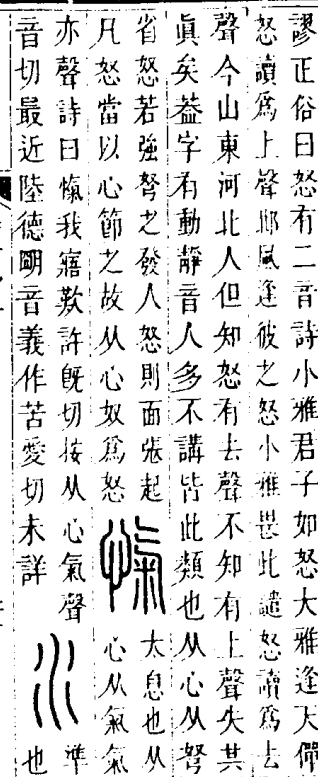 謬正俗曰怒有二音詩小雅君子如怒大雅逢天僤
怒讀爲上聲邶風逢彼之怒小雅畏此譴怒讀爲去
聲今山東河北人但知怒有去聲不知有上聲失其
眞矣葢字有動靜音人多不講皆此類也从心从弩
省怒若強弩之發人怒則面張起
凡怒當以心節之故从心奴爲怒
愾
太息也从
心从氣氣
亦聲詩曰愾我寤歎許旣切按从心氣聲
音切最近陸德明音義作苦愛切未詳
水
準
也